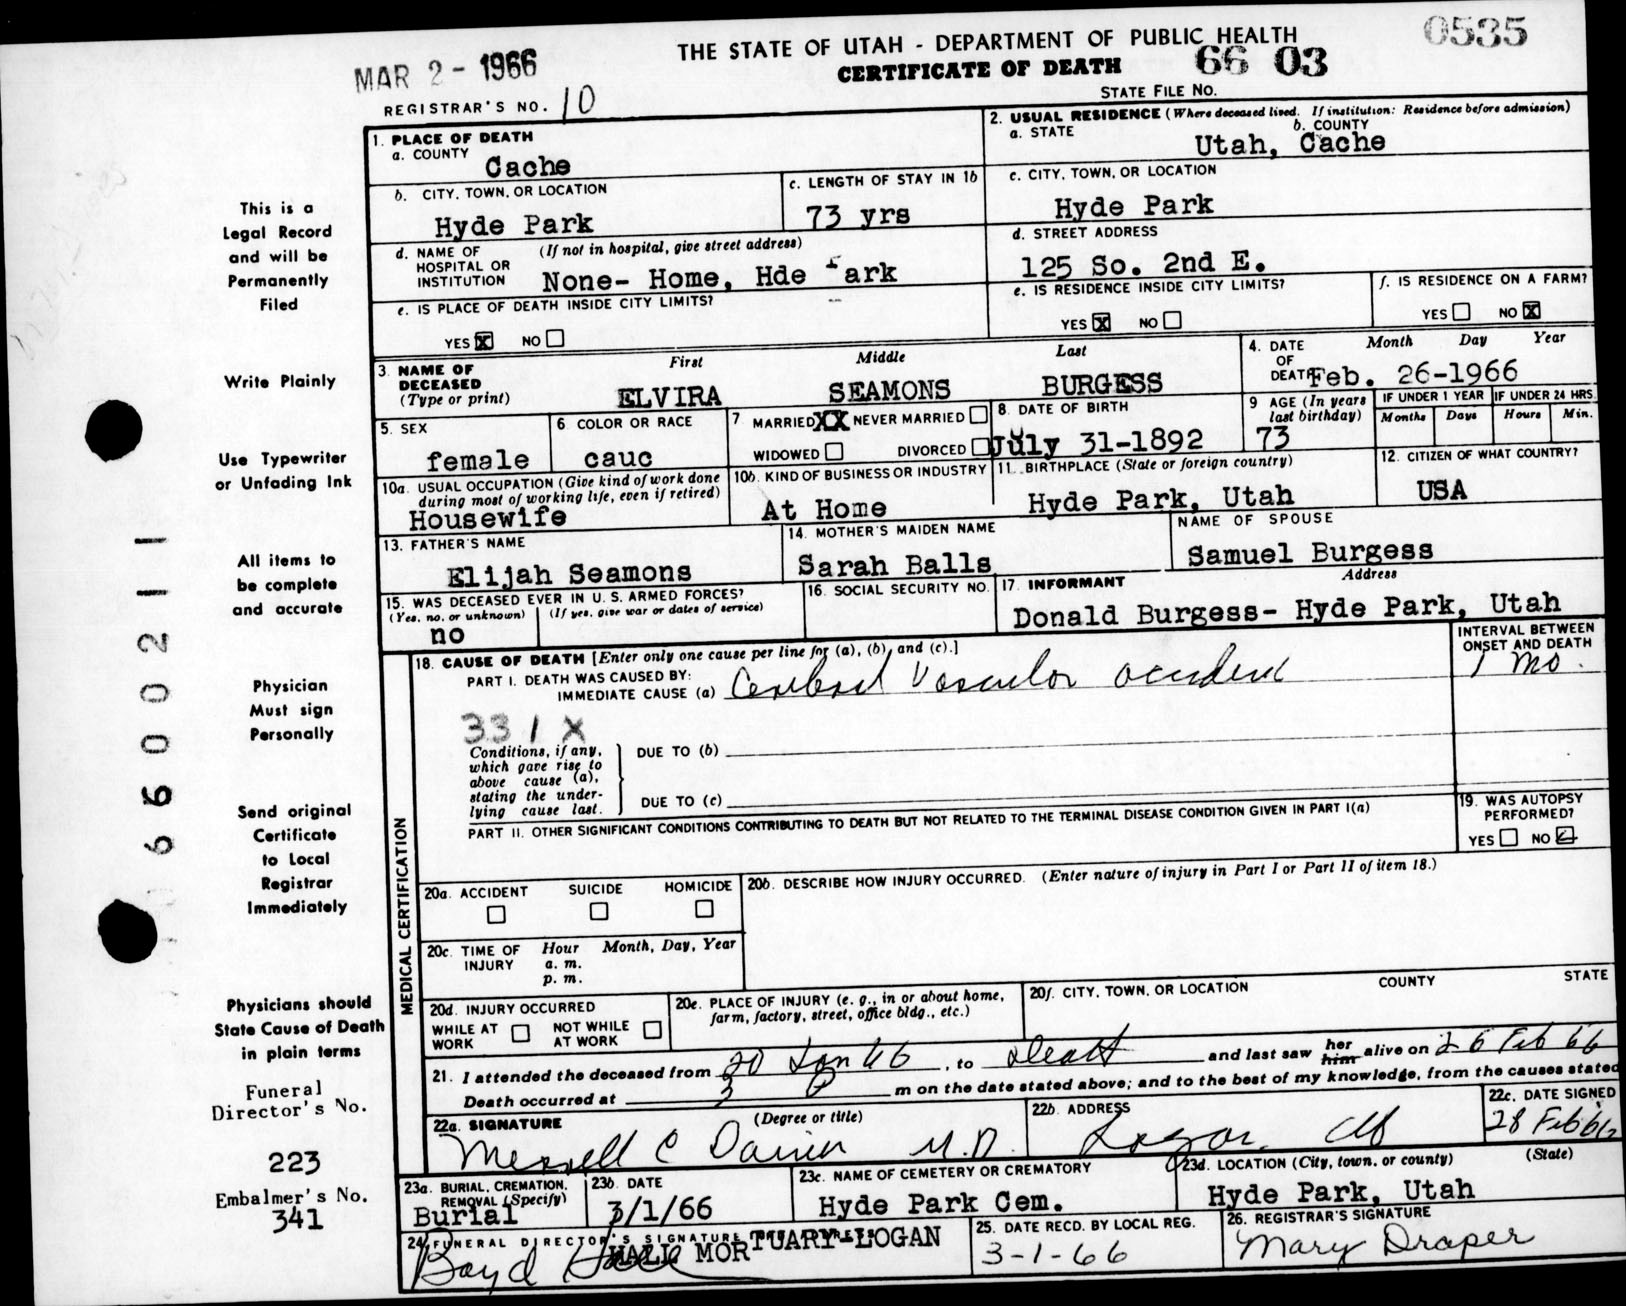 0535
THE STATE OF UTAH - DEPARTMENT OF PUBLIC HEALTH
MAR 2 - 1966
CERTIFICATE OF DEATH 66 03
STATE FILE NO.
REGISTRAR'S NO. 10
1. PLACE OF DEATH
a. COUNTY
Cache
2. USUAL RESIDENCE (Where deceased lived. If institution: Residence before admission)
a. STATE b. COUNTY
Utah, Cache
b. CITY, TOWN, OR LOCATION
Hyde Park
c. LENGTH OF STAY IN 1b
73 yrs
c. CITY, TOWN, OR LOCATION
Hyde Park
d. NAME OF HOSPITAL OR INSTITUTION (If not in hospital, give street address)
None- Home, Hde Park
d. STREET ADDRESS
125 So. 2nd E.
e. IS PLACE OF DEATH INSIDE CITY LIMITS?
YES X NO
e. IS RESIDENCE INSIDE CITY LIMITS?
YES X NO
f. IS RESIDENCE ON A FARM?
YES NO X
3. NAME OF DECEASED (Type or print)
First Middle Last
ELVIRA SEAMONS BURGESS
4. DATE OF DEATH Month Day Year
Feb. 26-1966
5. SEX
female
6. COLOR OR RACE
cauc
7. MARRIED XX NEVER MARRIED
WIDOWED DIVORCED
8. DATE OF BIRTH
July 31-1892
9 AGE (In years last birthday)
73
IF UNDER 1 YEAR
Months Days
IF UNDER 24 HRS.
Hours Min.
10a. USUAL OCCUPATION (Give kind of work done during most of working life, even if retired)
Housewife
10b. KIND OF BUSINESS OR INDUSTRY
At Home
11. BIRTHPLACE (State or foreign country)
Hyde Park, Utah
12. CITIZEN OF WHAT COUNTRY?
USA
13. FATHER'S NAME
Elijah Seamons
14. MOTHER'S MAIDEN NAME
Sarah Balls
NAME OF SPOUSE
Samuel Burgess
15. WAS DECEASED EVER IN U. S. ARMED FORCES?
(Yes, no, or unknown) (If yes, give war or dates of service)
no
16. SOCIAL SECURITY NO.
17. INFORMANT Address
Donald Burgess- Hyde Park, Utah
MEDICAL CERTIFICATION
18. CAUSE OF DEATH [Enter only one cause per line for (a), (b), and (c).]
PART I. DEATH WAS CAUSED BY:
IMMEDIATE CAUSE (a) Cerebral Vascular accident
INTERVAL BETWEEN ONSET AND DEATH
1 mo.
331X
Conditions, if any, which gave rise to above cause (a), stating the underlying cause last.
DUE TO (b)
DUE TO (c)
PART II. OTHER SIGNIFICANT CONDITIONS CONTRIBUTING TO DEATH BUT NOT RELATED TO THE TERMINAL DISEASE CONDITION GIVEN IN PART I(a)
19. WAS AUTOPSY PERFORMED?
YES NO
20a. ACCIDENT SUICIDE HOMICIDE
20b. DESCRIBE HOW INJURY OCCURRED. (Enter nature of injury in Part I or Part II of item 18.)
20c. TIME OF INJURY Hour Month, Day, Year
a. m.
p. m.
20d. INJURY OCCURRED
WHILE AT WORK NOT WHILE AT WORK
20e. PLACE OF INJURY (e. g., in or about home, farm, factory, street, office bldg., etc.)
20f. CITY, TOWN, OR LOCATION COUNTY STATE
21. I attended the deceased from 20 Jan 66, to Death and last saw her him alive on 26 Feb 66
Death occurred at 3 P m on the date stated above; and to the best of my knowledge, from the causes stated
22a. SIGNATURE (Degree or title)
Merrell C M.D.
22b. ADDRESS
Logan
22c. DATE SIGNED
28 Feb 66
23a. BURIAL, CREMATION, REMOVAL (Specify)
Burial
23b. DATE
3/1/66
23c. NAME OF CEMETERY OR CREMATORY
Hyde Park Cem.
23d. LOCATION (City, town, or county) (State)
Hyde Park, Utah
24. FUNERAL DIRECTOR'S SIGNATURE
Boyd Hall
HALL MORTUARY-LOGAN
25. DATE RECD. BY LOCAL REG.
3-1-66
26. REGISTRAR'S SIGNATURE
Mary Draper
This is a
Legal Record
and will be
Permanently
Filed
Write Plainly
Use Typewriter
or Unfading Ink
All items to
be complete
and accurate
Physician
Must sign
Personally
Send original
Certificate
to Local
Registrar
Immediately
Physicians should
State Cause of Death
in plain terms
Funeral
Director's No.
223
Embalmer's No.
341
66 00211